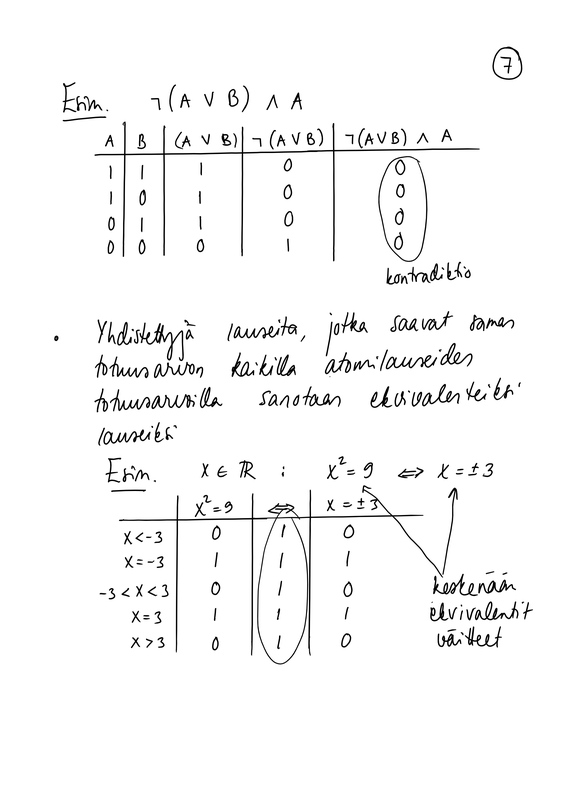 7
Esim. ¬(A ∨ B) ∧ A
A B (A ∨ B) ¬(A ∨ B) ¬(A∨B) ∧ A
1 1 1 0 0
1 0 1 0 0
0 1 1 0 0
0 0 0 1 0
kontradiktio
• Yhdistettyjä lauseita, jotka saavat saman
totuusarvon kaikilla atomilauseiden
totuusarvoilla sanotaan ekvivalenteiksi
lauseiksi
Esim. x ∈ ℝ : x² = 9 ⇔ x = ±3
x² = 9 ⇔ x = ±3
x < -3 0 1 0
x = -3 1 1 1
-3 < x < 3 0 1 0
x = 3 1 1 1
x > 3 0 1 0
keskenään
ekvivalentit
väitteet